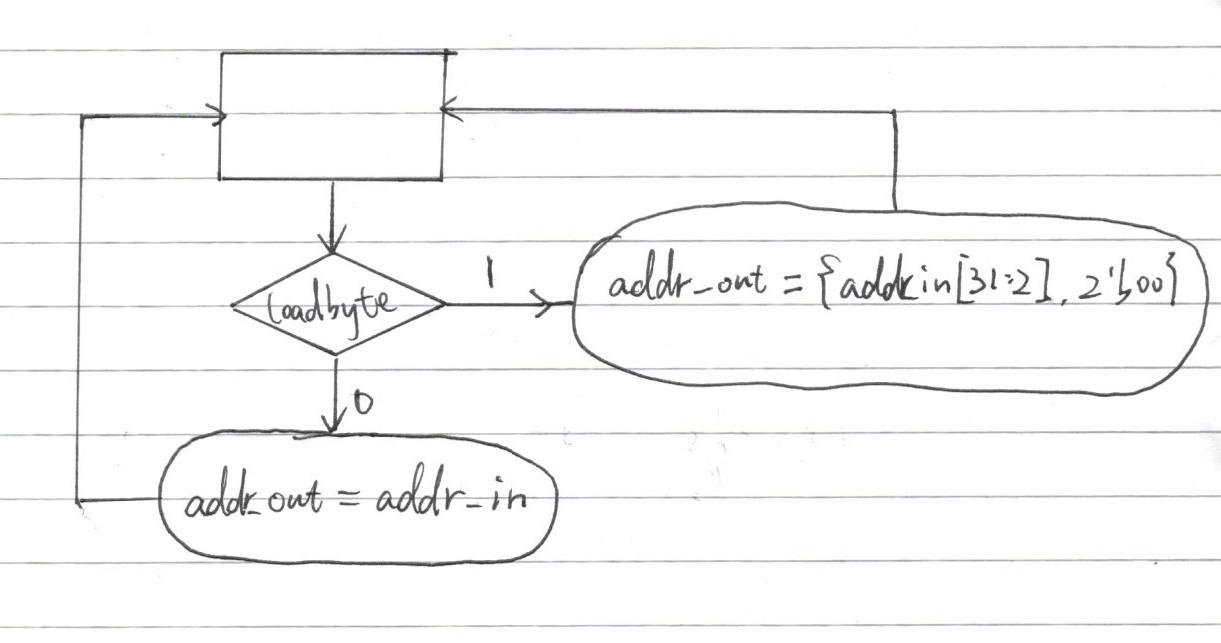 loadbyte
1
addr_out = {addr_in[31:2], 2'b00}
0
addr_out = addr_in